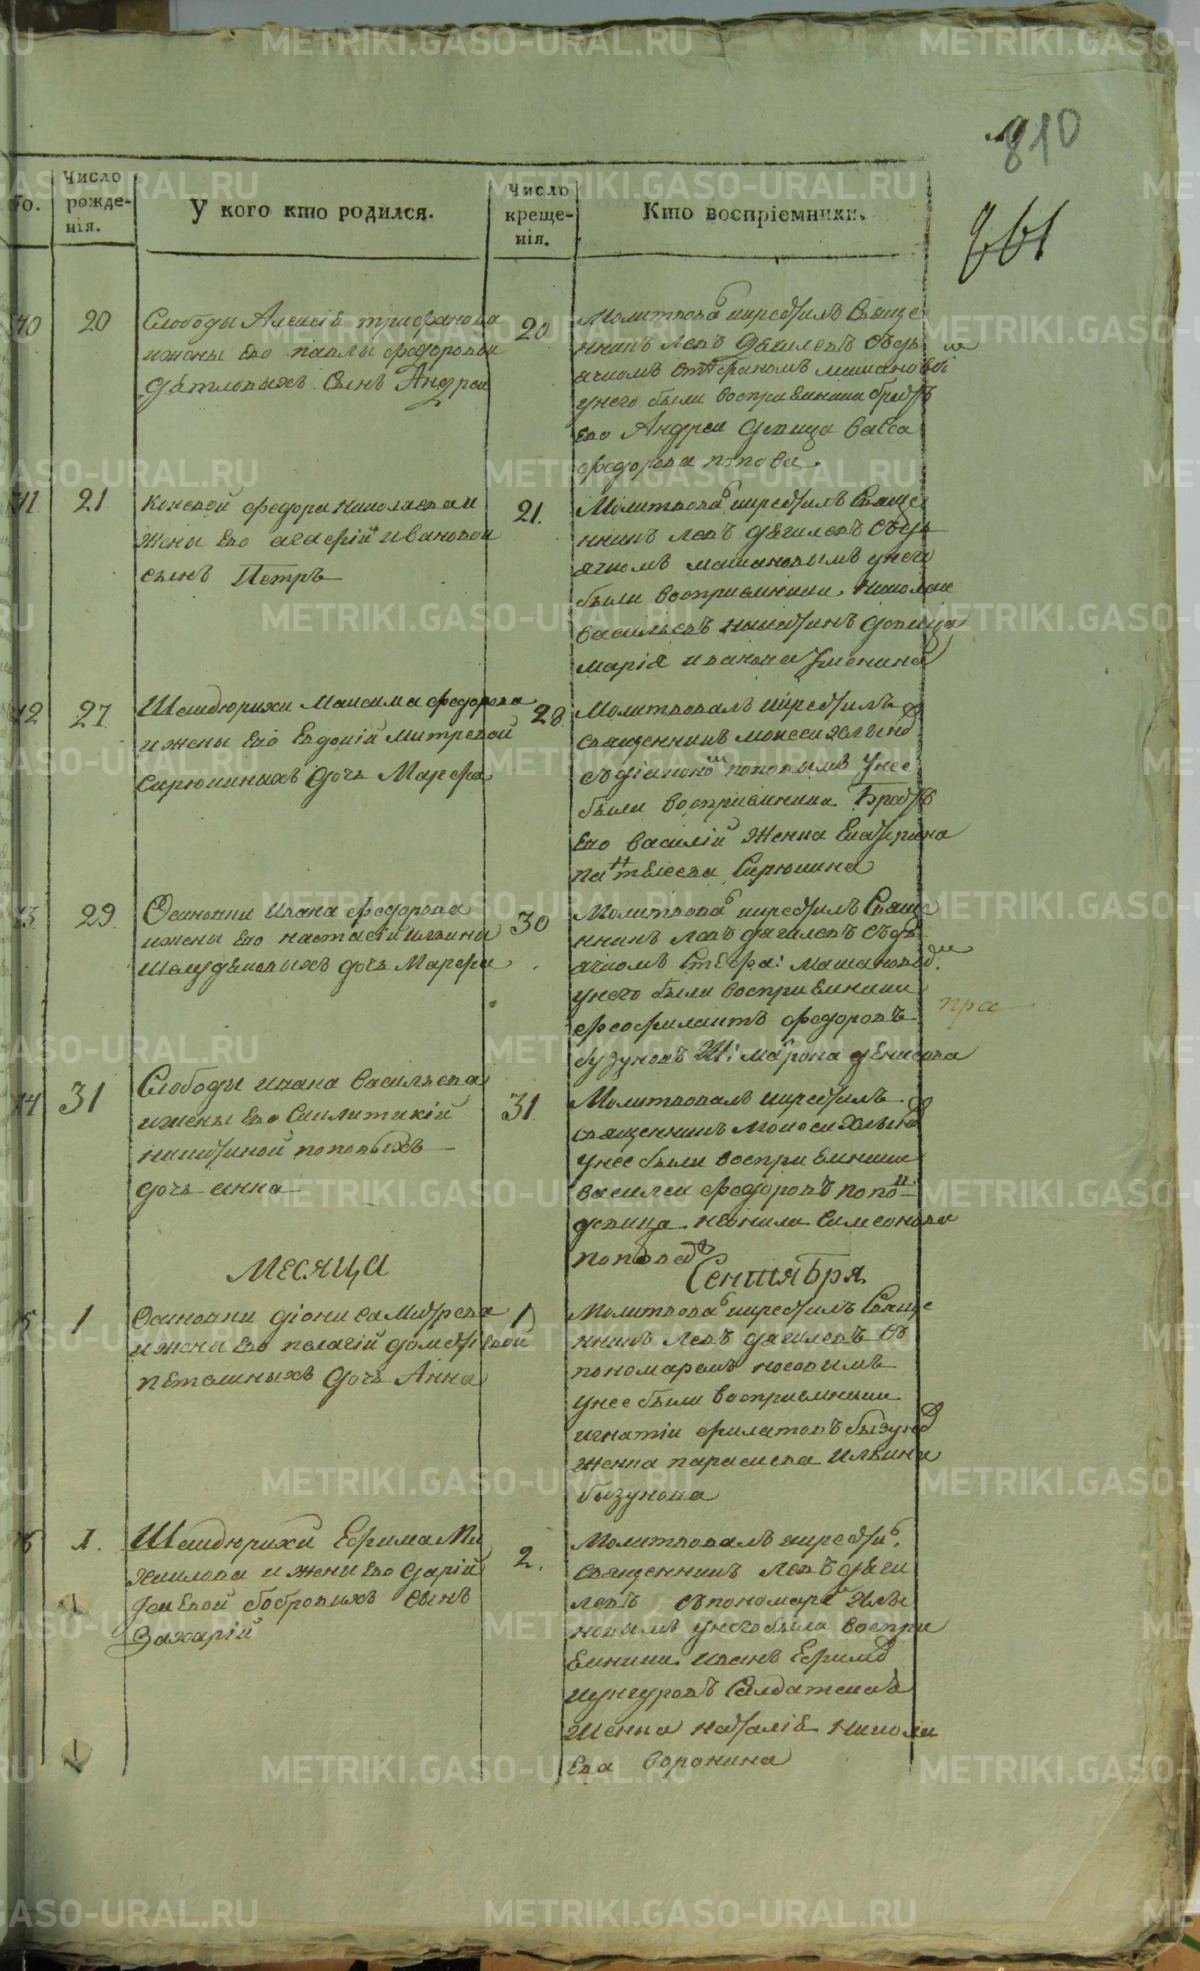 810
861
го.
Число рожде-нія.
У кого кто родился.
Число креще-нія.
Кто воспріемники.
20
Слободы Алексіѣ трифанова
ижены его павлы федоровой
дѣтловыхъ сынъ Андреи
20
Молитвова крестилъ Свяще
нникъ левъ дягилевъ съдь
ячкомъ стефаномъ машановы
унего были восприемники братъ
его Андреи девица васса
федорова попова.
11
21
Коневой федора николаева и
жены его агафіи ивановой
сынъ Петръ
21.
Молитвова крестилъ Свяще
нникъ левъ дягилевъ съдь
ячкомъ машановымъ унего
были восприемники николаи
васильевъ никитинъ девица
марія иванова
12
27
Шаидюрихи Максима федорова
и жены его Евдокіи митревой
Сирюкиныхъ дочь Марфа
28
Молитвовалъ крестилъ
священникъ моисеи хлыно
съдіаконом поповымъ унее
были восприемники братъ
его василіи женка Екатерина
пантелеева Сирюкина
13
29
Осиновки ивана федорова
ижены его настасіи ильины
дочь Марфа
30
Молитвова крестилъ Свяще
нникъ левъ дягилевъ съдь
ячкомъ Стефа: Машановы
унего были восприемники
феофилактъ федоровъ
бузуновъ Ш: матрона денисова
пра
14
31
Слободы ивана васильева
ижены его
никитиной поповыхъ
дочь анна
31
Молитвовалъ крестилъ
священникъ Моисеи Хлыно
унее были восприемники
василеи федоровъ попо
девица неонила симеонова
попова
Месяца Сентября
1
Осиновки діонисамитрева
ижены его пелагіи
петелиныхъ дочь Анна
1
Молитвова крестилъ Свяще
нникъ левъ дягилевъ съ
пономаремъ носовымъ
унее были восприемники
игнатіи филатовъ бызуно
женка параскева ильина
бызунова
1.
Шаидюрихи Ефима Ми
хаилова и жены его дарій
бобровыхъ сынъ
Захарій
2.
Молитвовалъ крести
священникъ левъ дяги
левъ съпономаре хлы
новымъ унего была воспри
емники иванъ Ефимо
кунгуровъ Салдатская
женка наталіе николи
ева воронина
METRIKI.GASO-URAL.RU